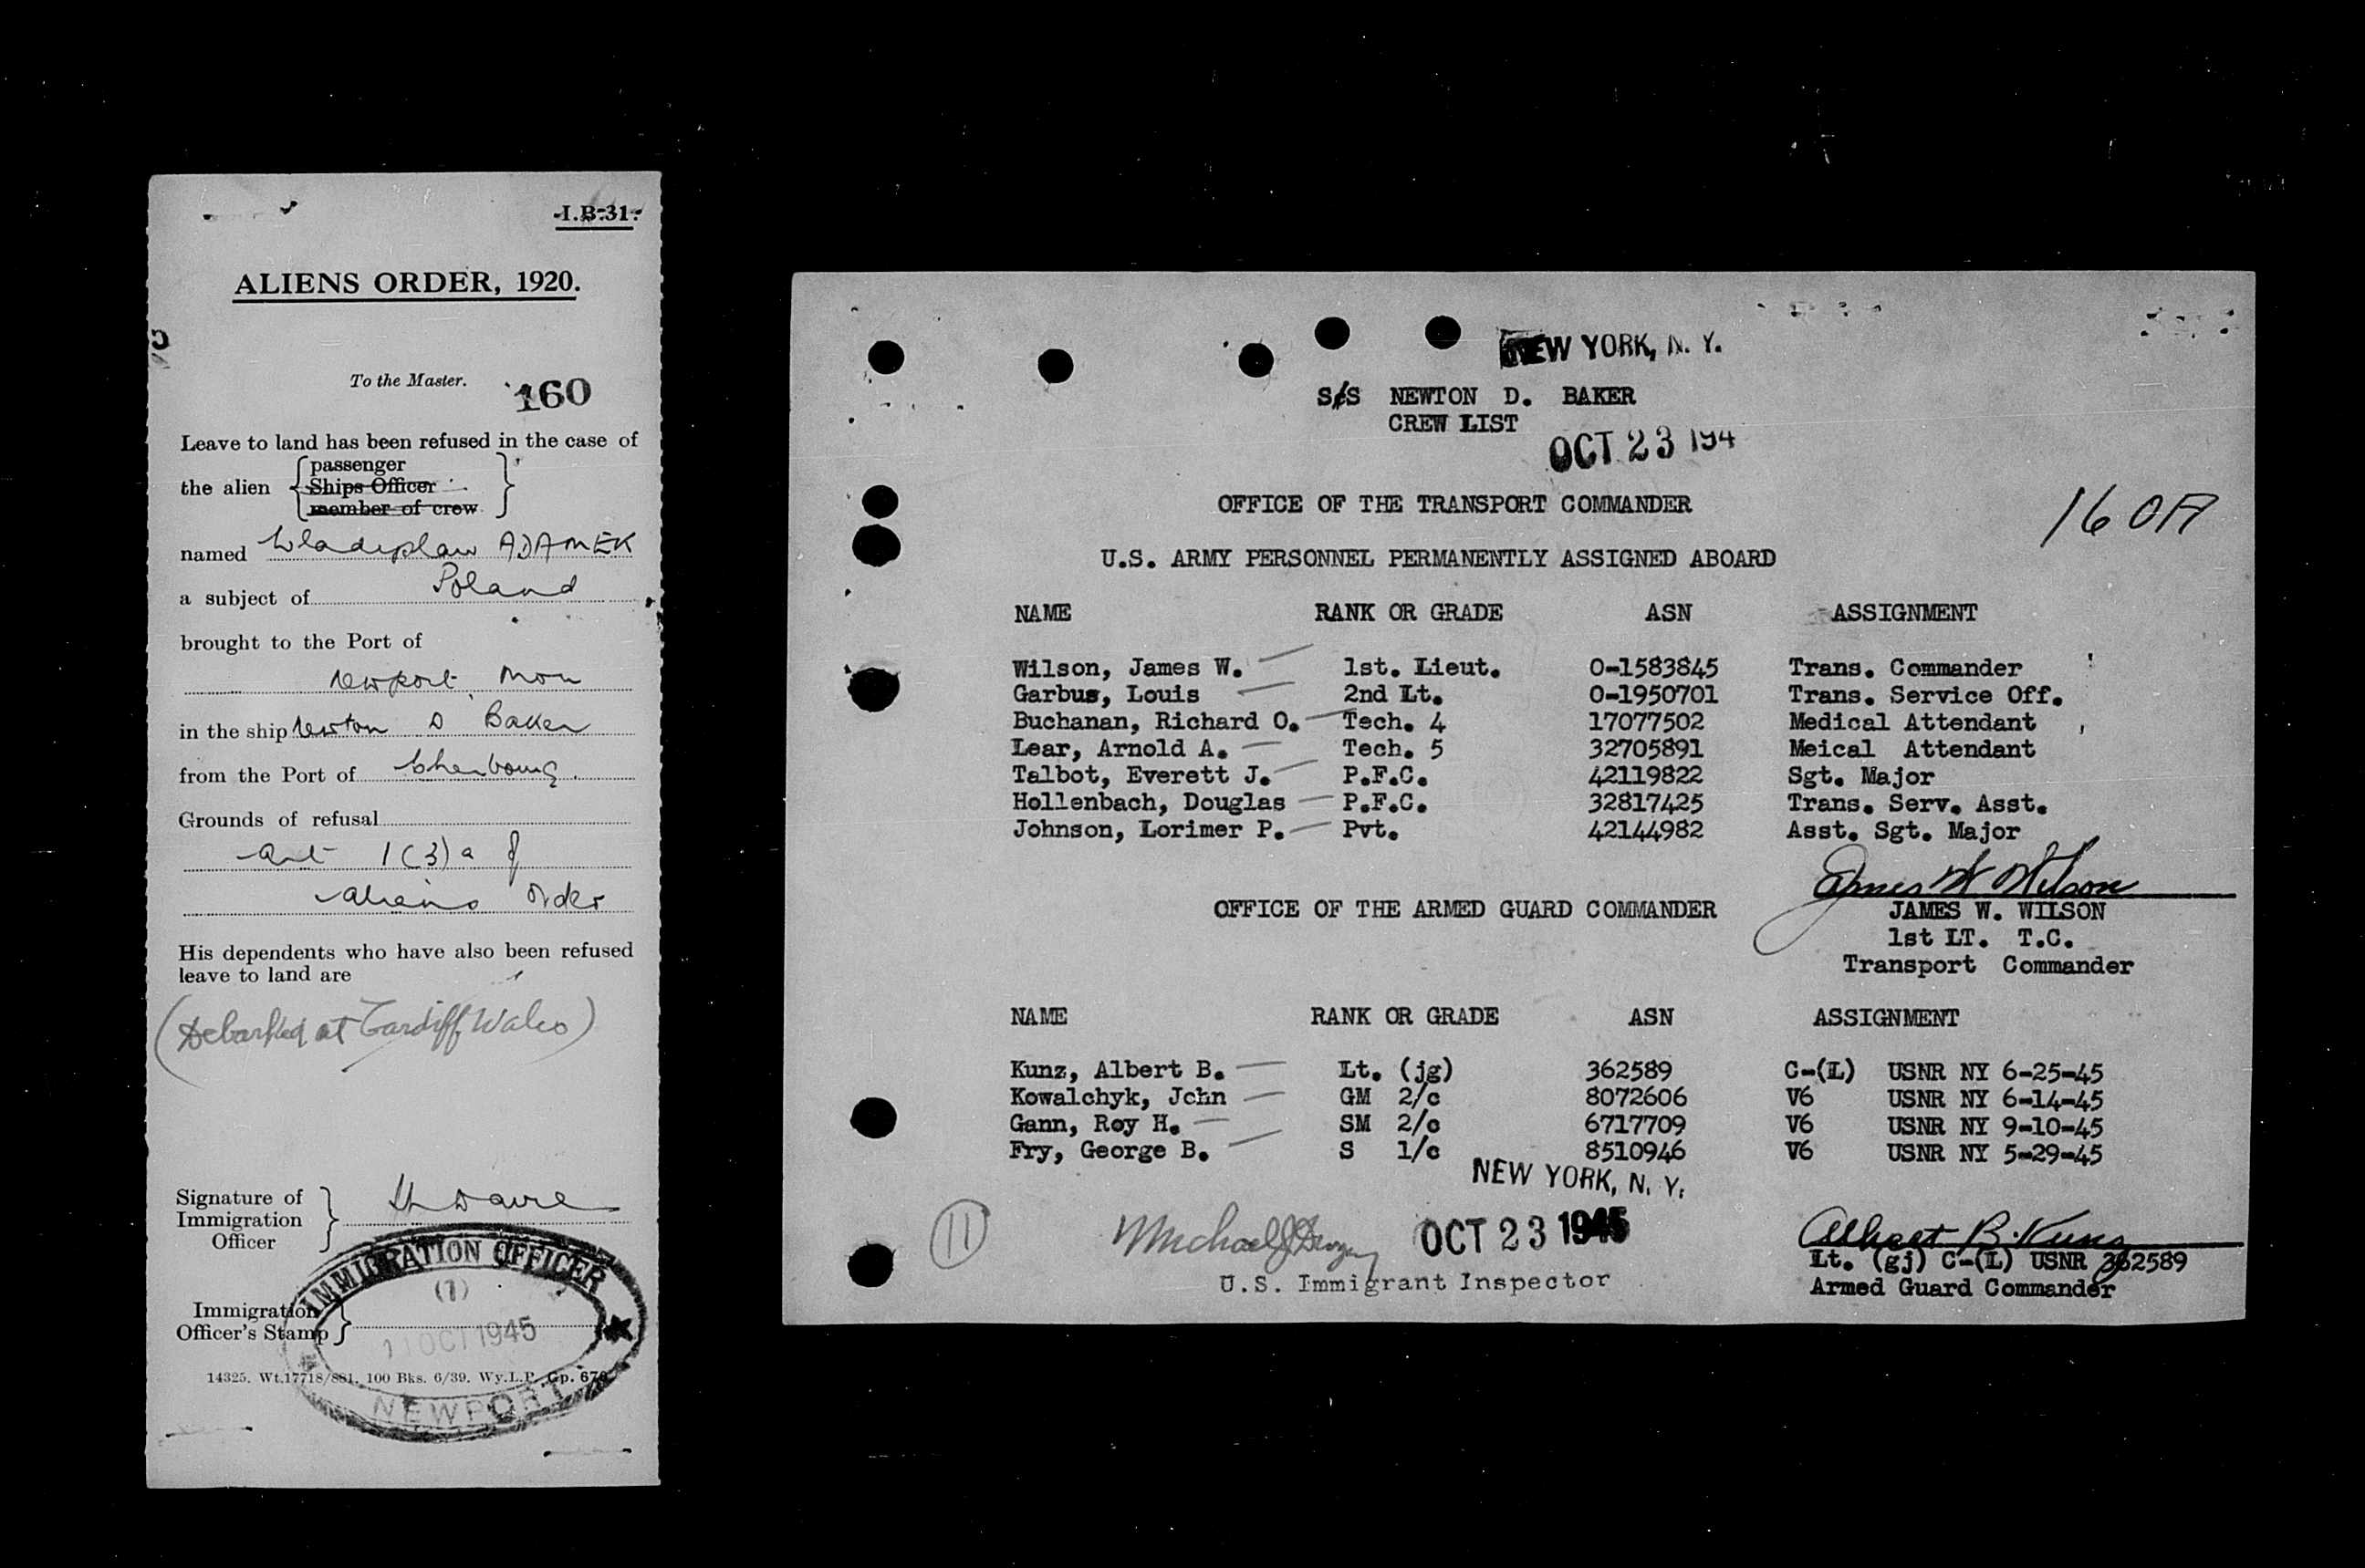 I.B.31.
ALIENS ORDER, 1920.
To the Master.
160
Leave to land has been refused in the case of
the alien { passenger
Ships Officer
member of crew }
named Wladyslaw ADAMEK
a subject of Poland
brought to the Port of
Newport, Mon
in the ship Newton D Baker
from the Port of Cherbourg.
Grounds of refusal
Art 1(3)a of
Aliens Order
His dependents who have also been refused
leave to land are
(Debarked at Cardiff Wales)
Signature of
Immigration
Officer
IMMIGRATION OFFICER
(7)
Immigration
Officer's Stamp
OCT 1945
14325. Wt.17718/881. 100 Bks. 6/39. Wy.L.P. Gp. 670
NEWPORT
NEW YORK, N. Y.
S/S NEWTON D. BAKER
CREW LIST
OCT 23 194
OFFICE OF THE TRANSPORT COMMANDER
160A
U.S. ARMY PERSONNEL PERMANENTLY ASSIGNED ABOARD
NAME RANK OR GRADE ASN ASSIGNMENT
Wilson, James W. 1st. Lieut. O-1583845 Trans. Commander
Garbus, Louis 2nd Lt. O-1950701 Trans. Service Off.
Buchanan, Richard O. Tech. 4 17077502 Medical Attendant
Lear, Arnold A. Tech. 5 32705891 Meical Attendant
Talbot, Everett J. P.F.C. 42119822 Sgt. Major
Hollenbach, Douglas P.F.C. 32817425 Trans. Serv. Asst.
Johnson, Lorimer P. Pvt. 42144982 Asst. Sgt. Major
James W Wilson
OFFICE OF THE ARMED GUARD COMMANDER
JAMES W. WILSON
1st LT. T.C.
Transport Commander
NAME RANK OR GRADE ASN ASSIGNMENT
Kunz, Albert B. Lt. (jg) 362589 C-(L) USNR NY 6-25-45
Kowalchyk, John GM 2/c 8072606 V6 USNR NY 6-14-45
Gann, Roy H. SM 2/c 6717709 V6 USNR NY 9-10-45
Fry, George B. S 1/c 8510946 V6 USNR NY 5-29-45
NEW YORK, N. Y.
11
Michael J
OCT 23 1945
U.S. Immigrant Inspector
Albert B. Kunz
Lt. (gj) C-(L) USNR 362589
Armed Guard Commander